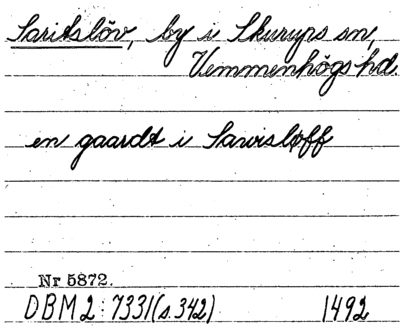 Saritslöv, by i Skurups sn,
Vemmenhögs hd.
en gaardt i Sawisløff
Nr 5872.
DBM 2: 7331 (s. 342) 1492